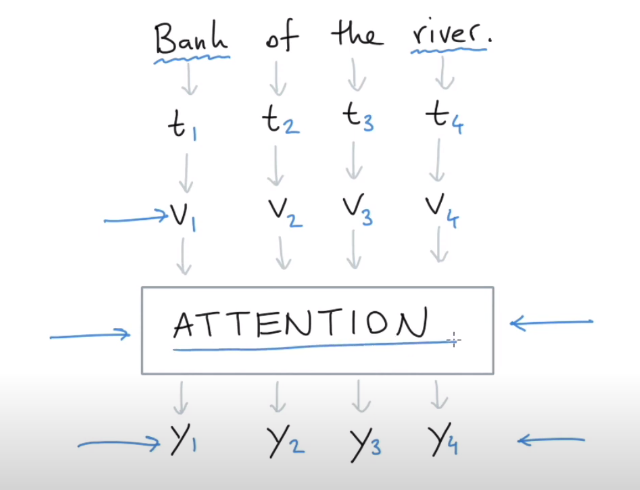 Bank of the river.
t₁ t₂ t₃ t₄
v₁ v₂ v₃ v₄
ATTENTION
y₁ y₂ y₃ y₄